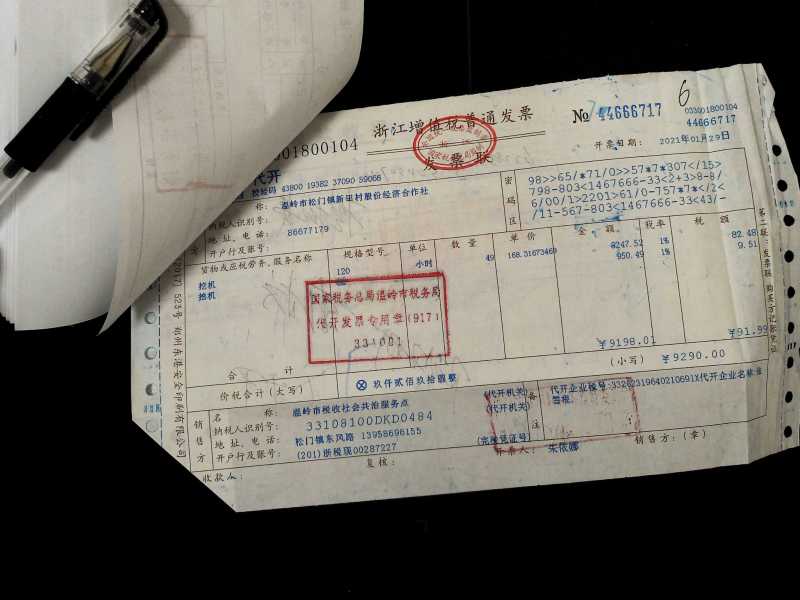 浙江增值税普通发票
发票联
001800104
代开
№ 44666717
6
033001800104
44666717
开票日期: 2021年01月29日
校验码 43800 19382 37090 59066
称: 温岭市松门镇新垦村股份经济合作社
纳税人识别号:
地址、电话: 86677179
开户行及账号:
密码区
98>>65/*71/0>>57*7*307</15>
798-803<1467666-33<2+3>8-8/
6/00/1>2201>61/0-757*7*</2<
/11-567-803<1467666-33<43/-
货物或应税劳务、服务名称 规格型号 单位 数量 单价 金额 税率 税额
挖机 120 小时 49 168.31673469 8247.52 1% 82.48
拖机 950.49 1% 9.51
国家税务总局温岭市税务局
代开发票专用章(917)
331001
合计 ¥9198.01 ¥91.99
价税合计(大写) ⊗ 玖仟贰佰玖拾圆整 (小写) ¥9290.00
销售方
名称: 温岭市税收社会共治服务点 (代开机关)
纳税人识别号: 33108100DKD0484 (代开机关)
地址、电话: 松门镇东风路 13958696155
开户行及账号: (201)浙税现00287227 (完税凭证号)
备注
代开企业税号:33262319640210691X代开企业名称:
收款人: 复核: 开票人: 朱依娜 销售方:(章)
第二联:发票联 购买方记账凭证
523号 郑州东港安全印刷有限公司